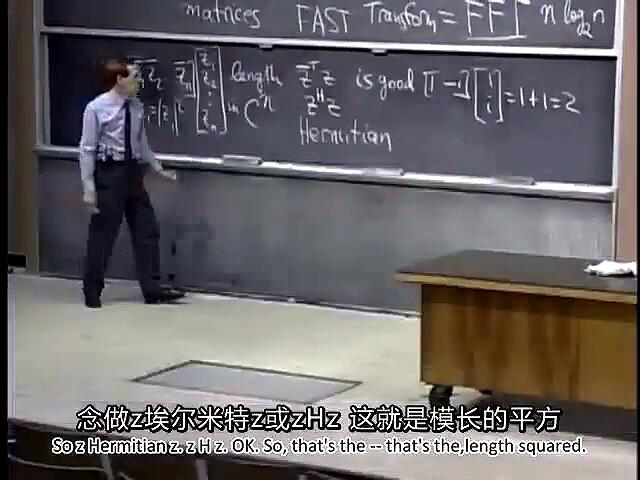 matrices FAST Transform = FFT n log₂ n
z̄₁ z̄₂ z̄ₙ [z₁ z₂ ⋮ zₙ] length z̄ᵀ z is good [1 −i] [1 i] = 1+1=2
in Cⁿ zᴴ z
Hermitian
念做z埃尔米特z或zHz 这就是模长的平方
So z Hermitian z. z H z. OK. So, that's the -- that's the,length squared.